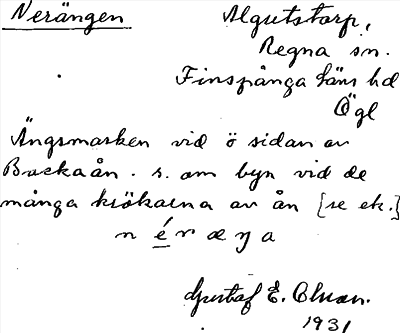 Nerängen
Algutstorp,
Regna sn.
Finspånga läns hd
Ögl
Ängsmarken vid ö sidan av
Buckaån. s. om byn vid de
många krökarna av ån [se ek.]
n é r æ ŋ a
Gustaf E.
1931